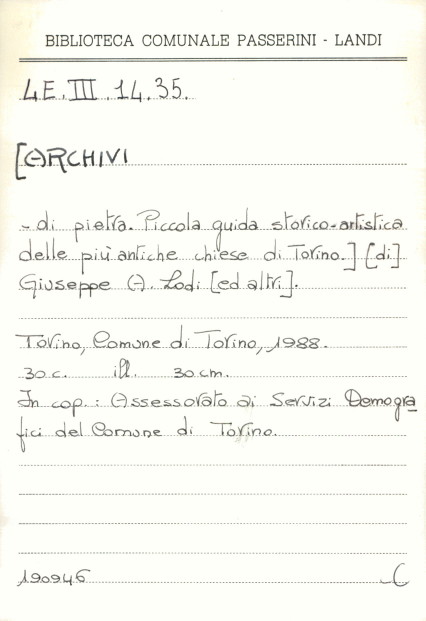 BIBLIOTECA COMUNALE PASSERINI - LANDI
4E. III. 14. 35.
[ARCHIVI
- di pietra. Piccola guida storico-artistica
delle più antiche chiese di Torino.] [di]
Giuseppe A. Lodi [ed altri].
Torino, Comune di Torino, 1988.
30 c. ill. 30 cm.
In cop.: Assessorato ai Servizi Demogra
fici del Comune di Torino.
190946